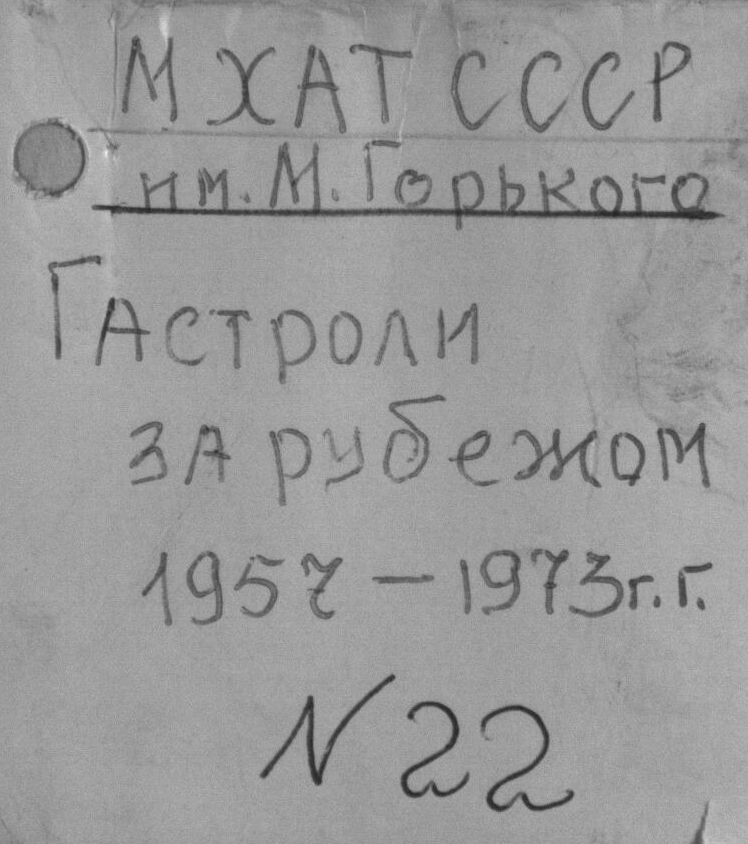 МХАТ СССР
им. М. Горького
Гастроли
за рубежом
1957 – 1973 г.г.
N 22